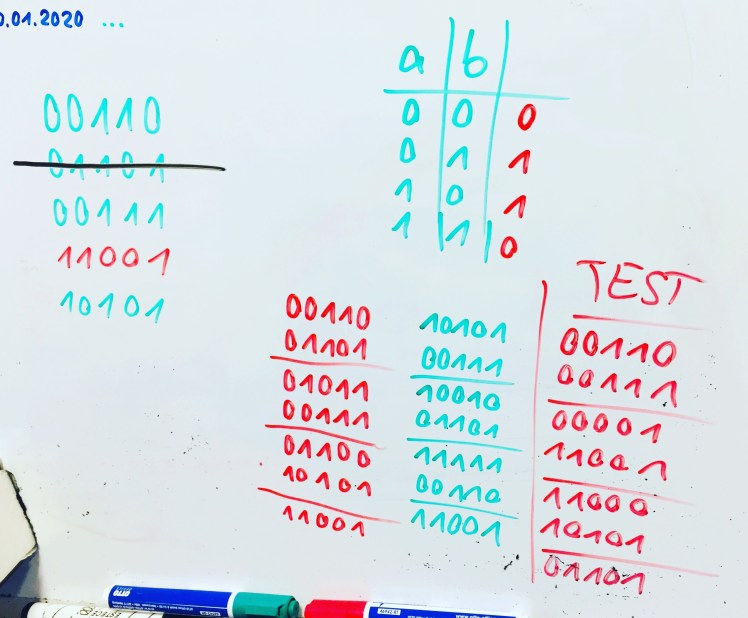 0.01.2020 ...
00110
01101
00111
11001
10101
a b
0 0 0
0 1 1
1 0 1
1 1 0
00110
01101
01011
00111
01100
10101
11001
10101
00111
10010
01101
11111
00110
11001
TEST
00110
00111
00001
11001
11000
10101
01101
otto